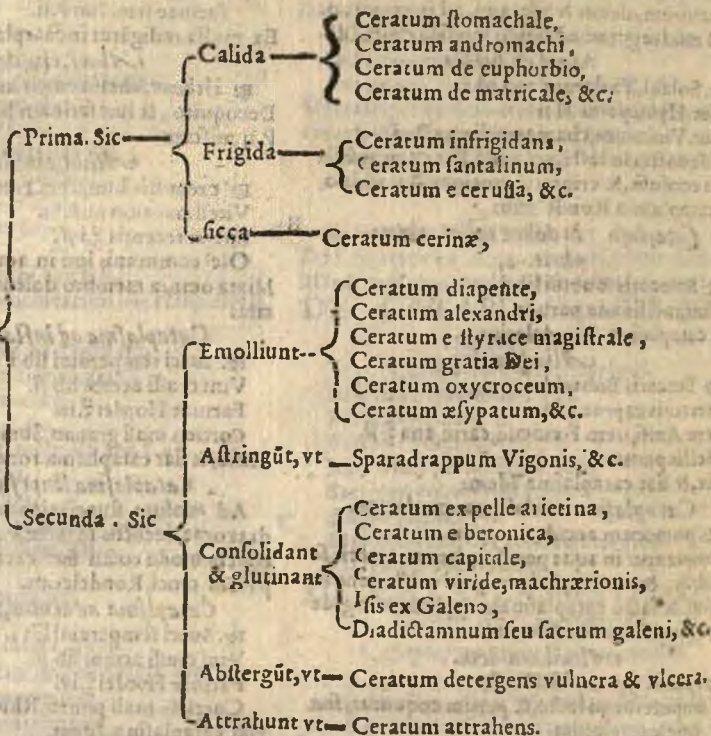 Prima. Sic
Calida
Ceratum ſtomachale,
Ceratum andromachi,
Ceratum de euphorbio,
Ceratum de matricale, &c.
Frigida
Ceratum infrigidans,
Ceratum ſantalinum,
Ceratum e ceruſſa, &c.
ſicca
Ceratum cerinæ,
Secunda . Sic
Emolliunt
Ceratum diapente,
Ceratum alexandri,
Ceratum e ſtyrace magiſtrale,
Ceratum gratia Dei,
Ceratum oxycroceum,
Ceratum æſypatum, &c.
Aſtringūt, vt
Sparadrappum Vigonis, &c.
Conſolidant
& glutinant
Ceratum ex pelle arietina,
Ceratum e betonica,
Ceratum capitale,
Ceratum viride, machrærionis,
Iſis ex Galeno,
Diadictamnum ſeu ſacrum galeni, &c.
Abſtergūt, vt
Ceratum detergens vulnera & vlcera.
Attrahunt vt
Ceratum attrahens.